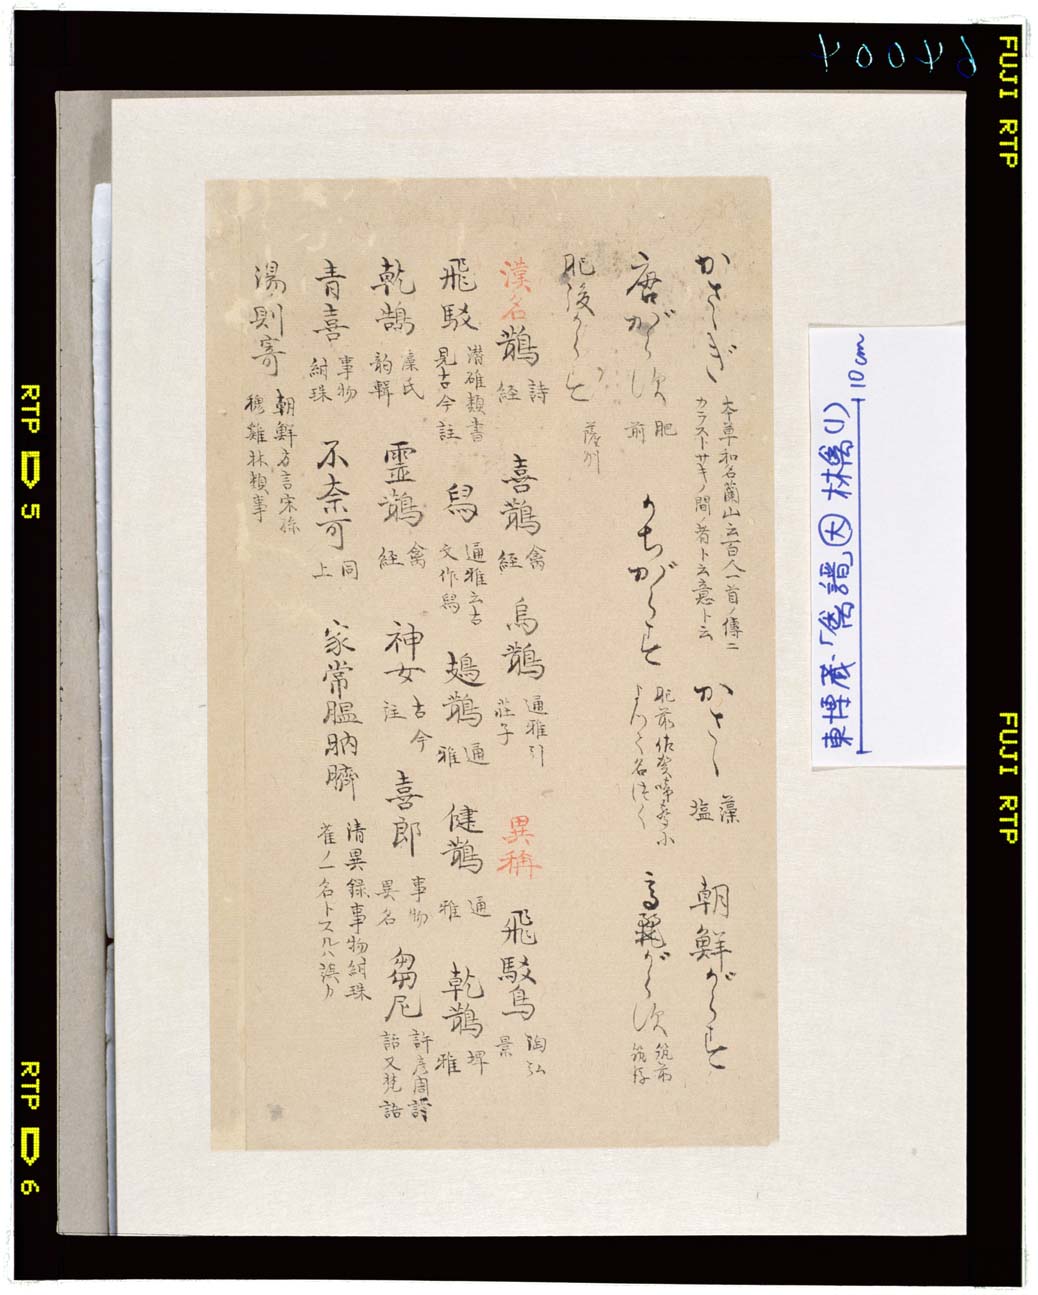 かさゝぎ 本草和名蘭山云百人一首ノ傳ニ
カラストサギノ間ノ者ト云意ト云 かさゝ 藻塩 朝鮮がらす
唐がらす 肥前 かちがらす 肥前佐賀啼声ニ
よつて名つく 高麗がらす 筑前
肥後がらす 薩州
漢名 鵲 詩経 喜鵲 禽経 烏鵲 通雅引
荘子 異称 飛駁鳥 陶弘景
飛駁 潜確類書
見古今註 舄 通雅云古
文作舄 鴂鵲 通雅 健鵲 通雅 乾鵲 埤雅
乾鵠 韵輯 靈鵲 禽経 神女 古今註 喜郎 事物
異名 芻尼 許彦周詩
話又梵語
青喜 事物
紺珠 不奈可 同上 家常膃肭臍 清異録事物紺珠
雀ノ一名トスルハ誤カ
湯則寄 朝鮮方言宋孫
穆雞林類事
東博蔵・「禽譜」 大 林禽(1)
10cm
64004
FUJI RTP
FUJI RTP
RTP 5
RTP 6